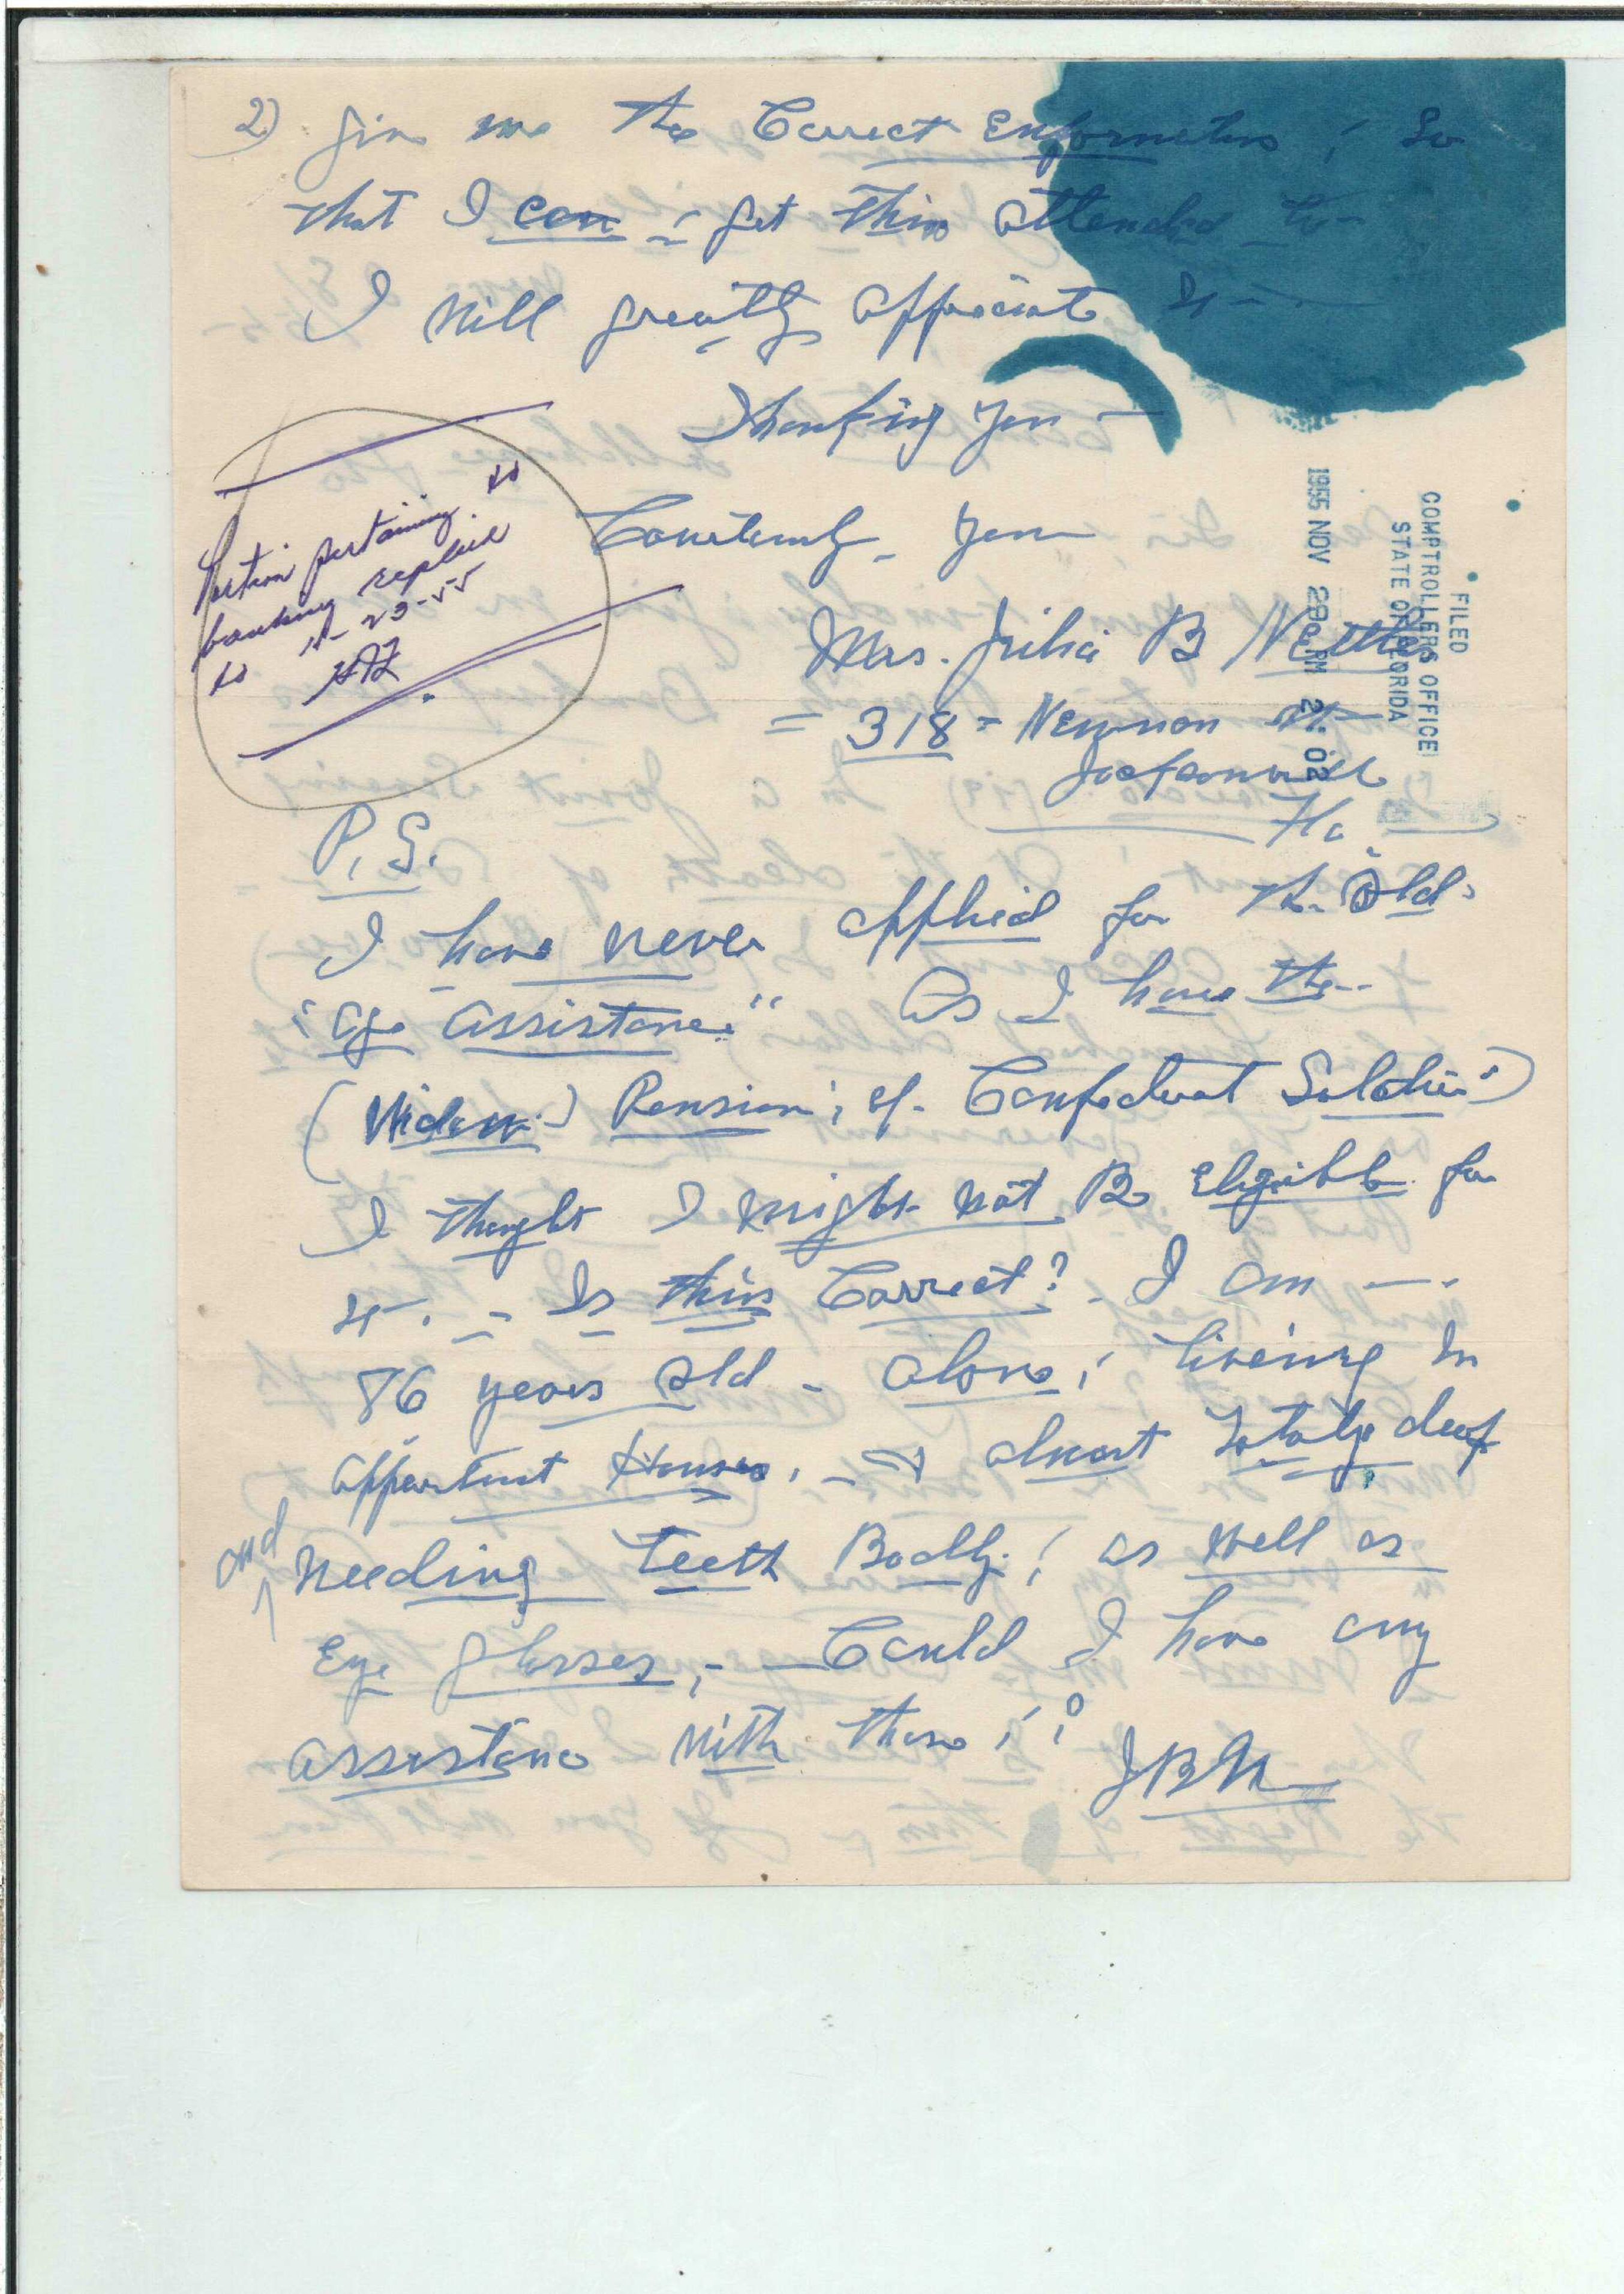 2) give me the Correct Enformation ; So
that I can ; get this attended to -
I will greatly appreciate it - .
Thanking you -
Courteously - yours
Mrs. Julia B Nettles
= 318 = Newnan St
Jacksonville
Fla.
Portion pertaining to
banking replied
to 11-29-55
FILED
COMPTROLLERS OFFICE
STATE OF FLORIDA
1955 NOV 28 PM 2:02
P.S.
I have never applied for the Old
"age assistance" As I have the
(Widow) Pension ; of Confederat Soldier)
I thought I might not Be Eligible for
it. - Is this Correct? - I am -
86 years old - alone ; living in
appartment Houses, - almost totaly deaf
and needing teeth Badly ; as well as
Eye glasses ; - Could I have any
assistance with these ; ?
JBN